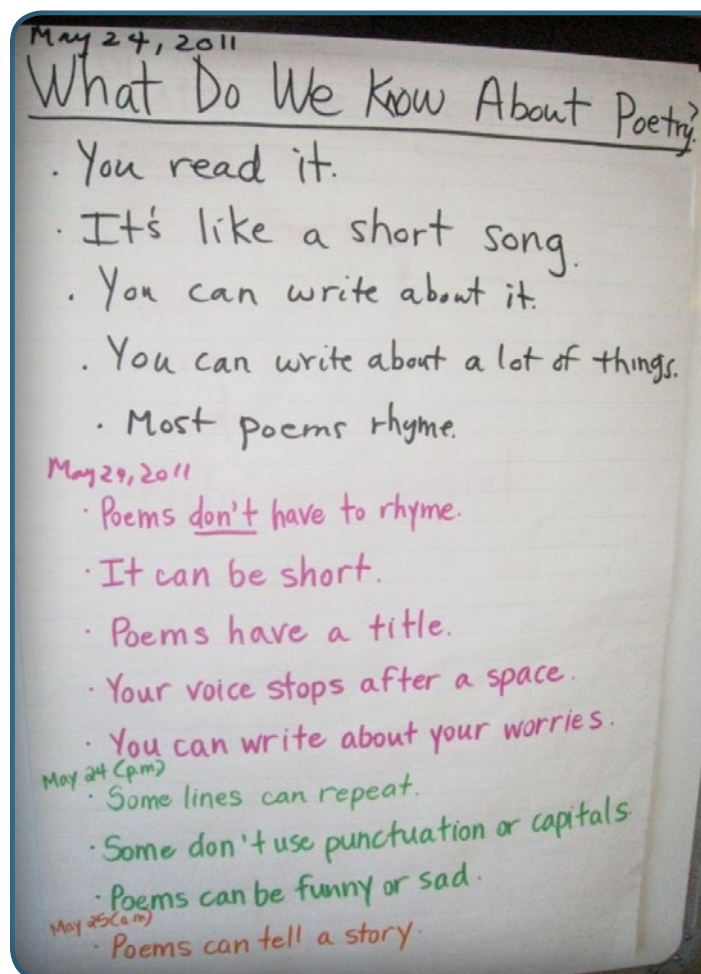 May 24, 2011
What Do We Know About Poetry?
· You read it.
· It's like a short song.
· You can write about it.
· You can write about a lot of things.
· Most poems rhyme.
May 24, 2011
· Poems don't have to rhyme.
· It can be short.
· Poems have a title.
· Your voice stops after a space.
· You can write about your worries.
May 24 (p.m)
· Some lines can repeat.
· Some don't use punctuation or capitals
· Poems can be funny or sad.
May 25 (a.m)
· Poems can tell a story.